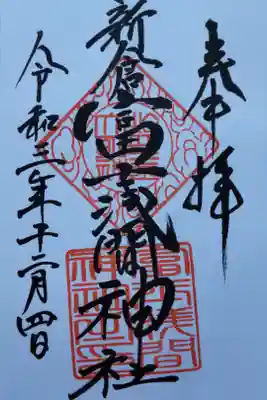 奉拝
新倉富士浅間神社
令和三年十二月四日